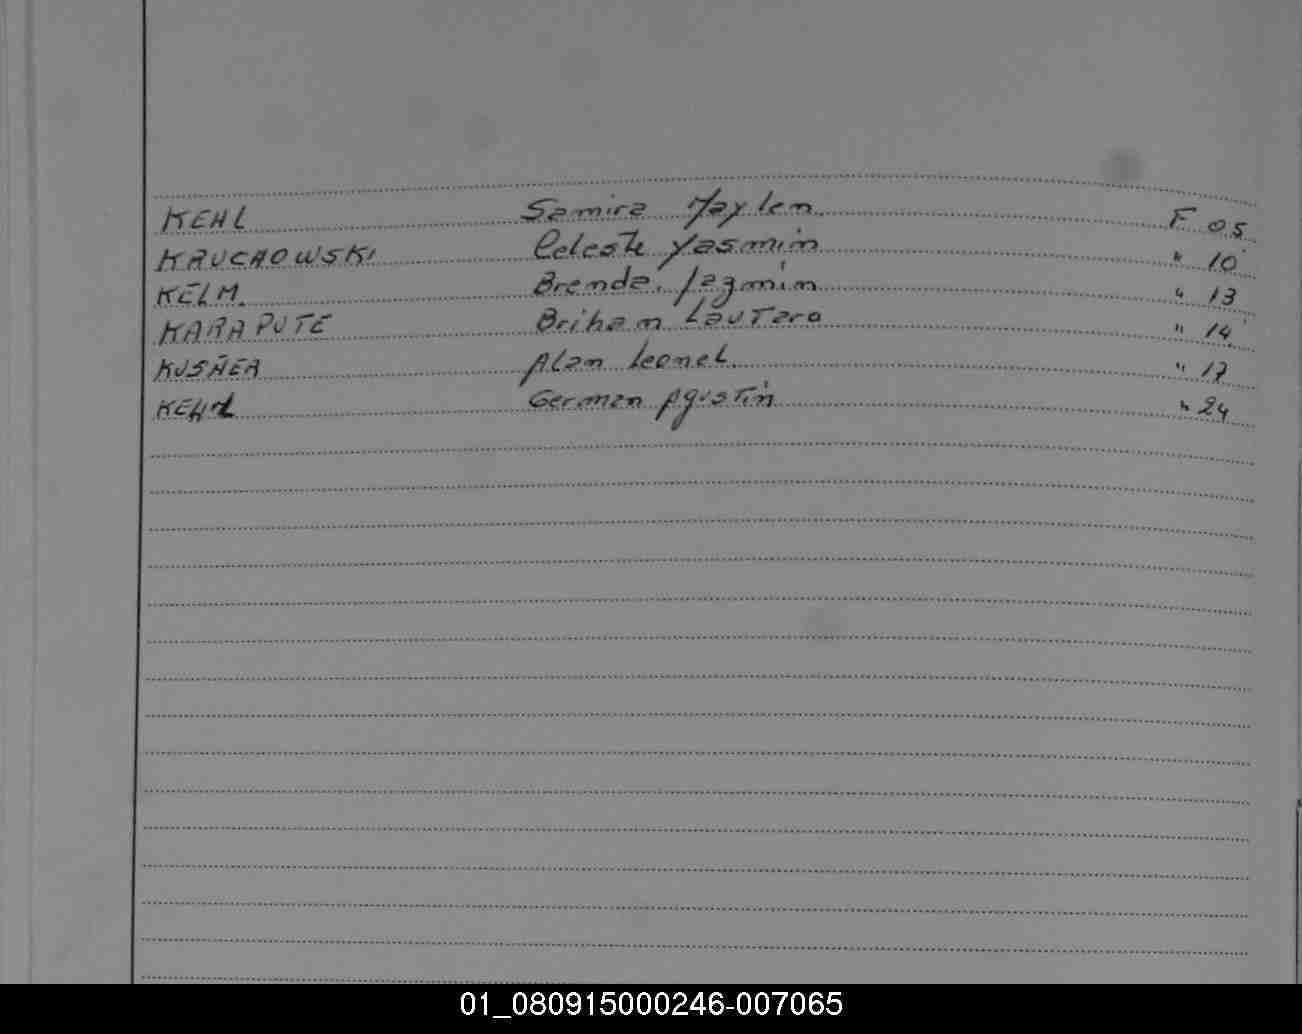 KEHL Samira Maylen F 05
KRUCHOWSKI Celeste Yasmin " 10
KELM. Brenda Jazmin " 13
KARAPUTE Briham Lautaro " 14
KUSNER Alan Leonel " 17
German Agustin " 24
01_080915000246-007065